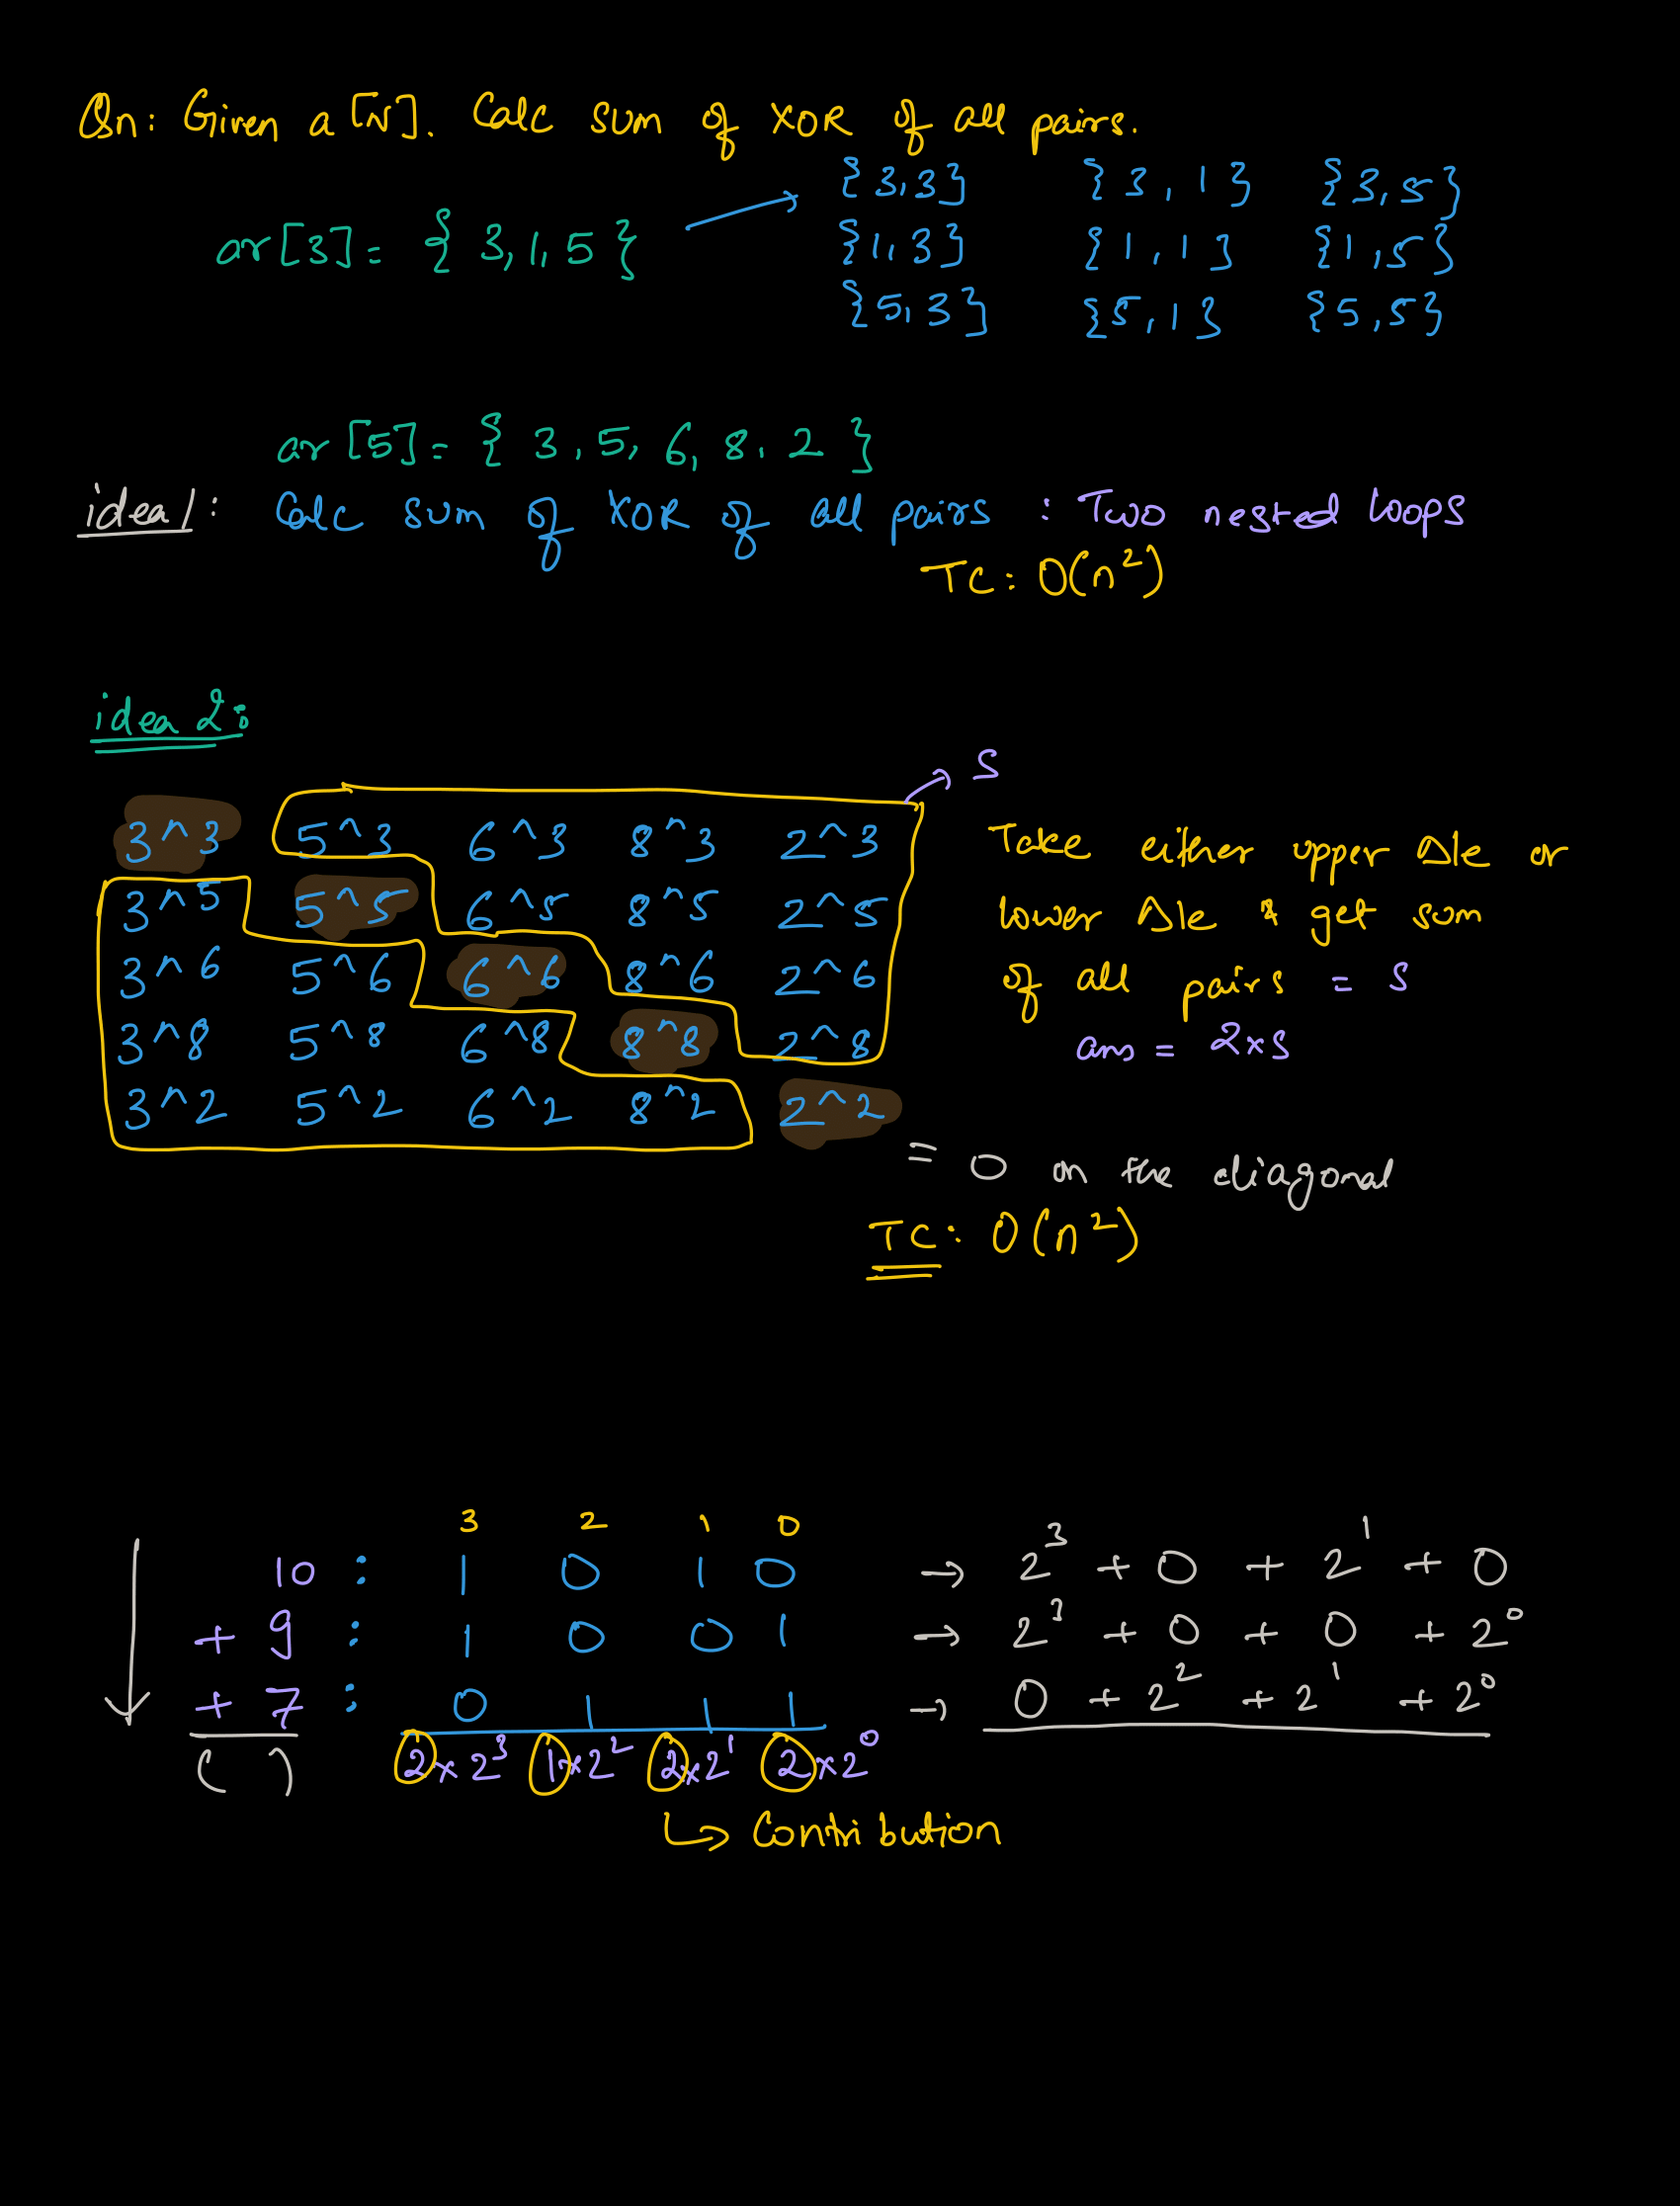 Qn: Given a[N]. Calc sum of XOR of all pairs.
ar[3] = { 3, 1, 5 }
{3,3} {3,1} {3,5}
{1,3} {1,1} {1,5}
{5,3} {5,1} {5,5}
ar[5] = { 3, 5, 6, 8, 2 }
idea 1: Calc sum of XOR of all pairs : Two nested loops
TC: O(n²)
idea 2:
S
3^3 5^3 6^3 8^3 2^3
3^5 5^5 6^5 8^5 2^5
3^6 5^6 6^6 8^6 2^6
3^8 5^8 6^8 8^8 2^8
3^2 5^2 6^2 8^2 2^2
Take either upper Δle or
lower Δle & get sum
of all pairs = S
ans = 2×S
= 0 on the diagonal
TC: O(n²)
3 2 1 0
10 : 1 0 1 0 → 2³ + 0 + 2¹ + 0
+ 9 : 1 0 0 1 → 2³ + 0 + 0 + 2⁰
+ 7 : 0 1 1 1 → 0 + 2² + 2¹ + 2⁰
( ) 2×2³ 1×2² 2×2¹ 2×2⁰
↳ Contribution